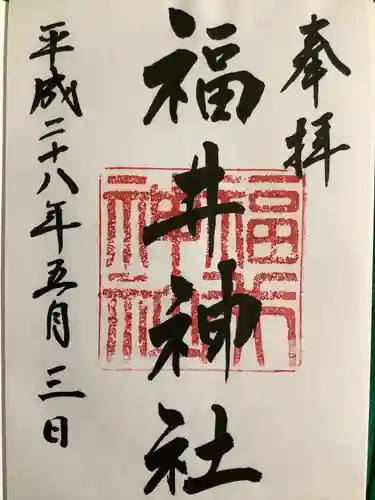 奉拝
福井神社
福井
神社
平成二十八年五月三日